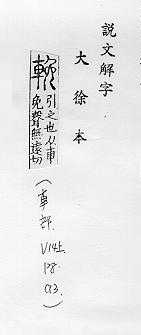 說文解字
大徐本
輓 引之也从車
免聲無遠切
(車部. V14上.